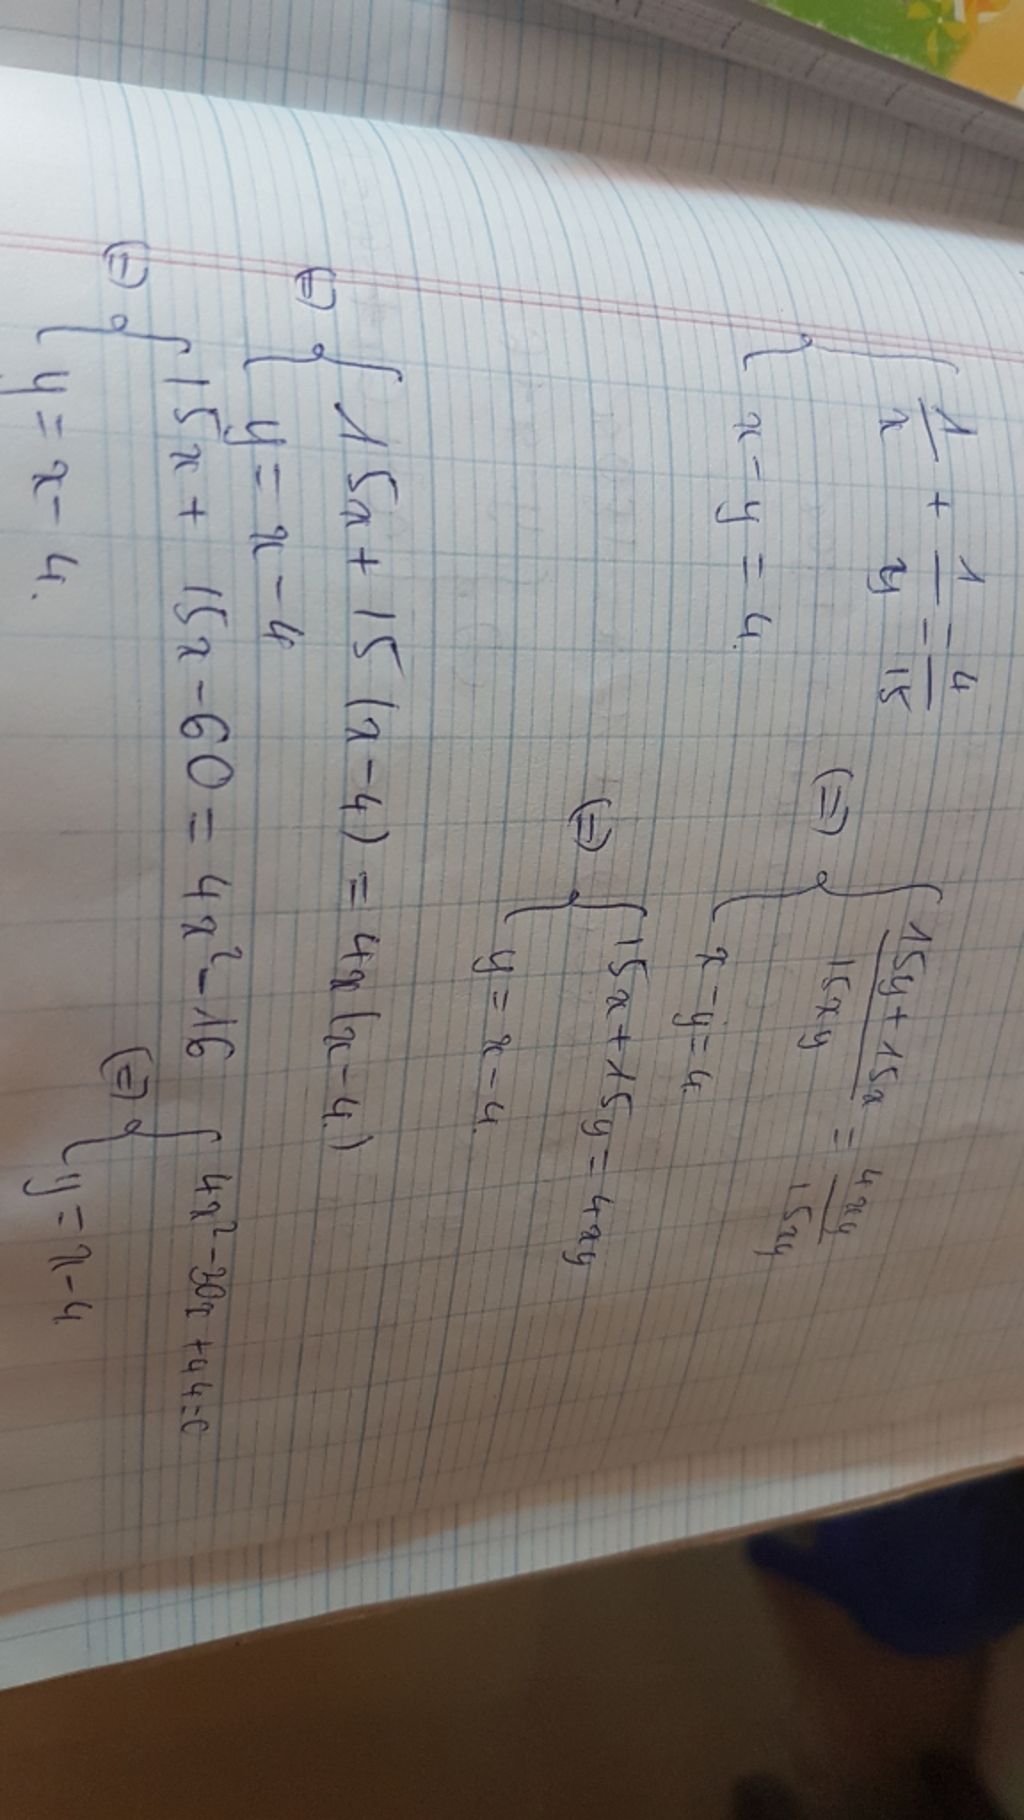 { 1/x + 1/y = 4/15
x - y = 4.
(=) { (15y + 15x)/15xy = 4xy/15xy
x - y = 4.
(=) { 15x + 15y = 4xy
y = x - 4.
(=) { 15x + 15(x - 4) = 4x(x - 4)
y = x - 4
(=) { 15x + 15x - 60 = 4x² - 16
y = x - 4.
(=) { 4x² - 30x + 44 = 0
y = x - 4